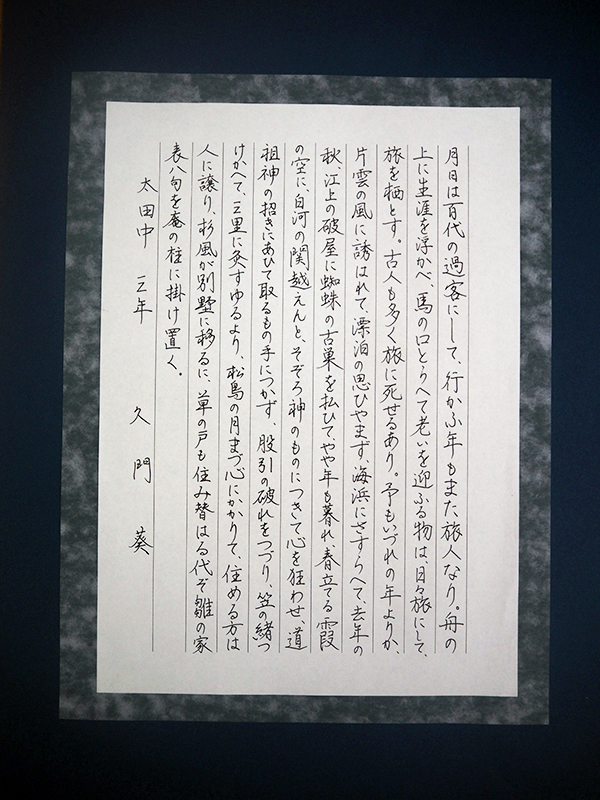 月日は百代の過客にして、行かふ年もまた旅人なり。舟の
上に生涯を浮かべ、馬の口とらへて老いを迎ふる物は、日々旅にして、
旅を栖とす。古人も多く旅に死せるあり。予もいづれの年よりか、
片雲の風に誘はれて、漂泊の思ひやまず、海浜にさすらへて、去年の
秋、江上の破屋に蜘蛛の古巣を払ひて、やや年も暮れ、春立てる霞
の空に、白河の関越えんと、そぞろ神のものにつきて心を狂わせ、道
祖神の招きにあひて取るもの手につかず、股引の破れをつづり、笠の緒つ
けかへて、三里に灸すゆるより、松島の月まづ心にかかりて、住める方は
人に譲り、杉風が別墅に移るに、草の戸も住み替はる代ぞ雛の家
表八句を庵の柱に掛け置く。
太田中 三年 久門 葵